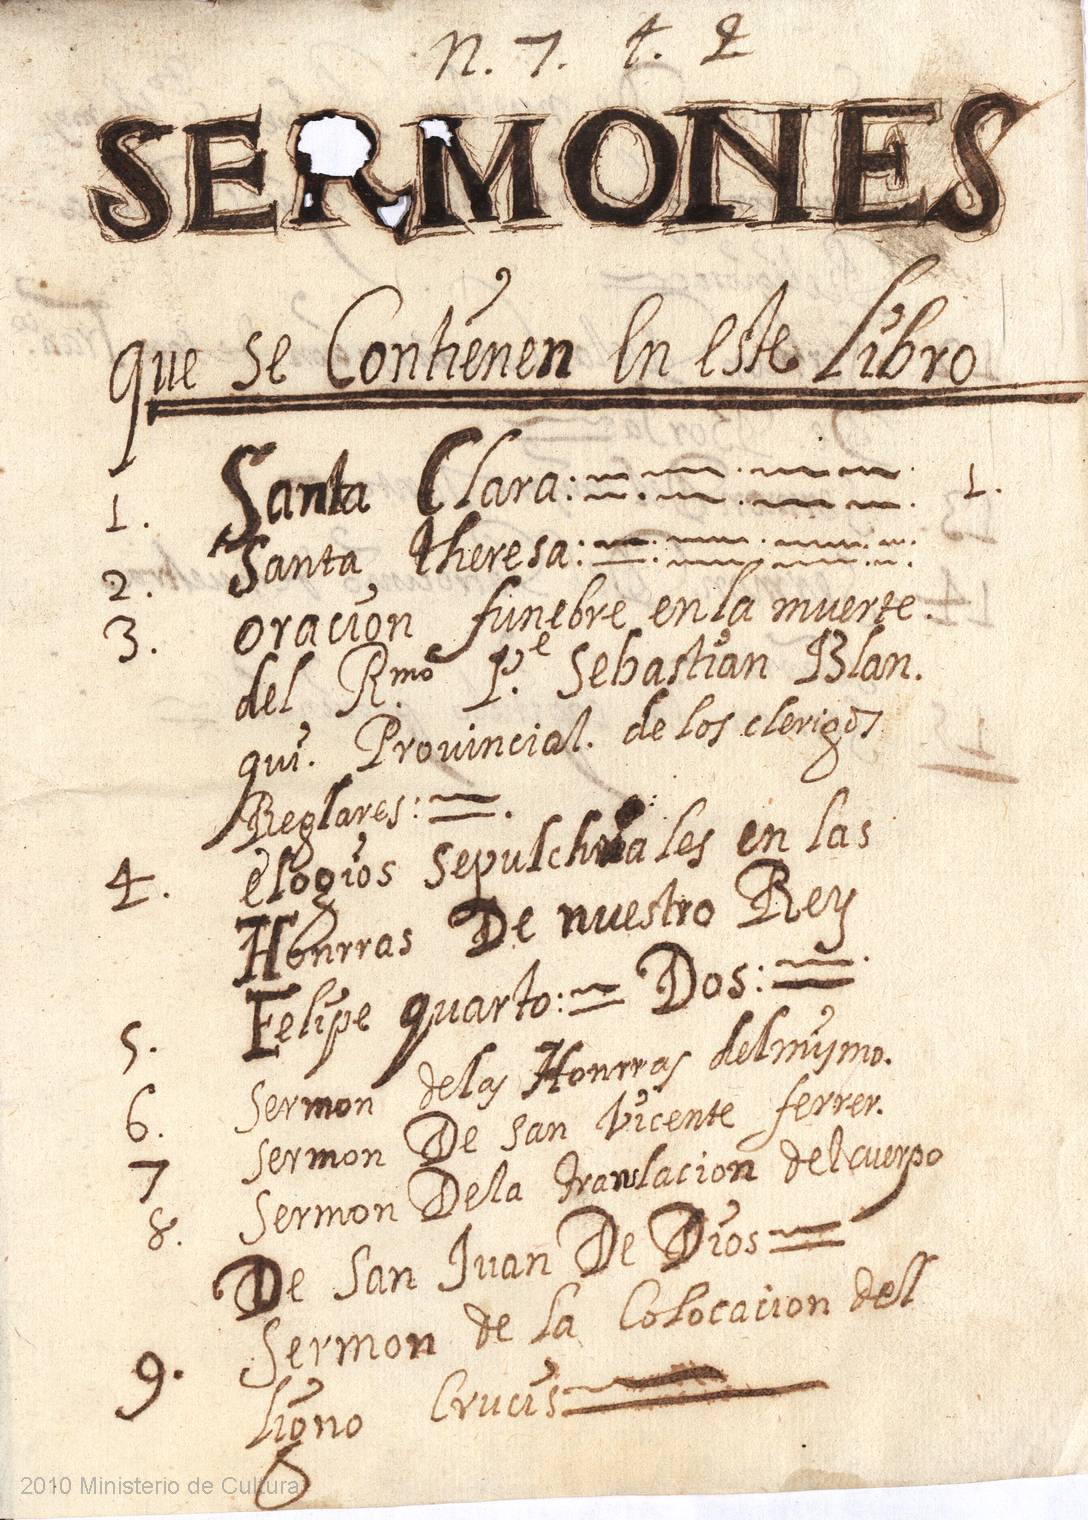 n. 7. t. 2
SERMONES
que se Contienen En este Libro
1. Santa Clara: 1.
2. Santa theresa:
3. oracion funebre en la muerte.
del Rmo. P.e Sebastian Blan.
qui. Provincial. de los clerigos
Reglares:
4. elogios sepulchrales en las
Honrras De nuestro Rey
Felipe quarto: Dos:
5. Sermon delas Honrras del mysmo.
6. Sermon De san Vicente ferrer.
7 Sermon Dela translacion del cuerpo
8. De San Juan De Dios
Sermon de la Colocacion del
9. ligno Crucis
2010 Ministerio de Cultura